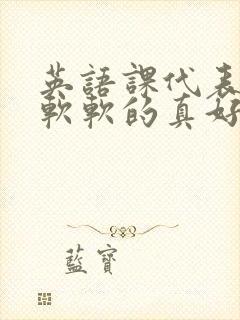 英語課代表
軟軟的真好
藍寶